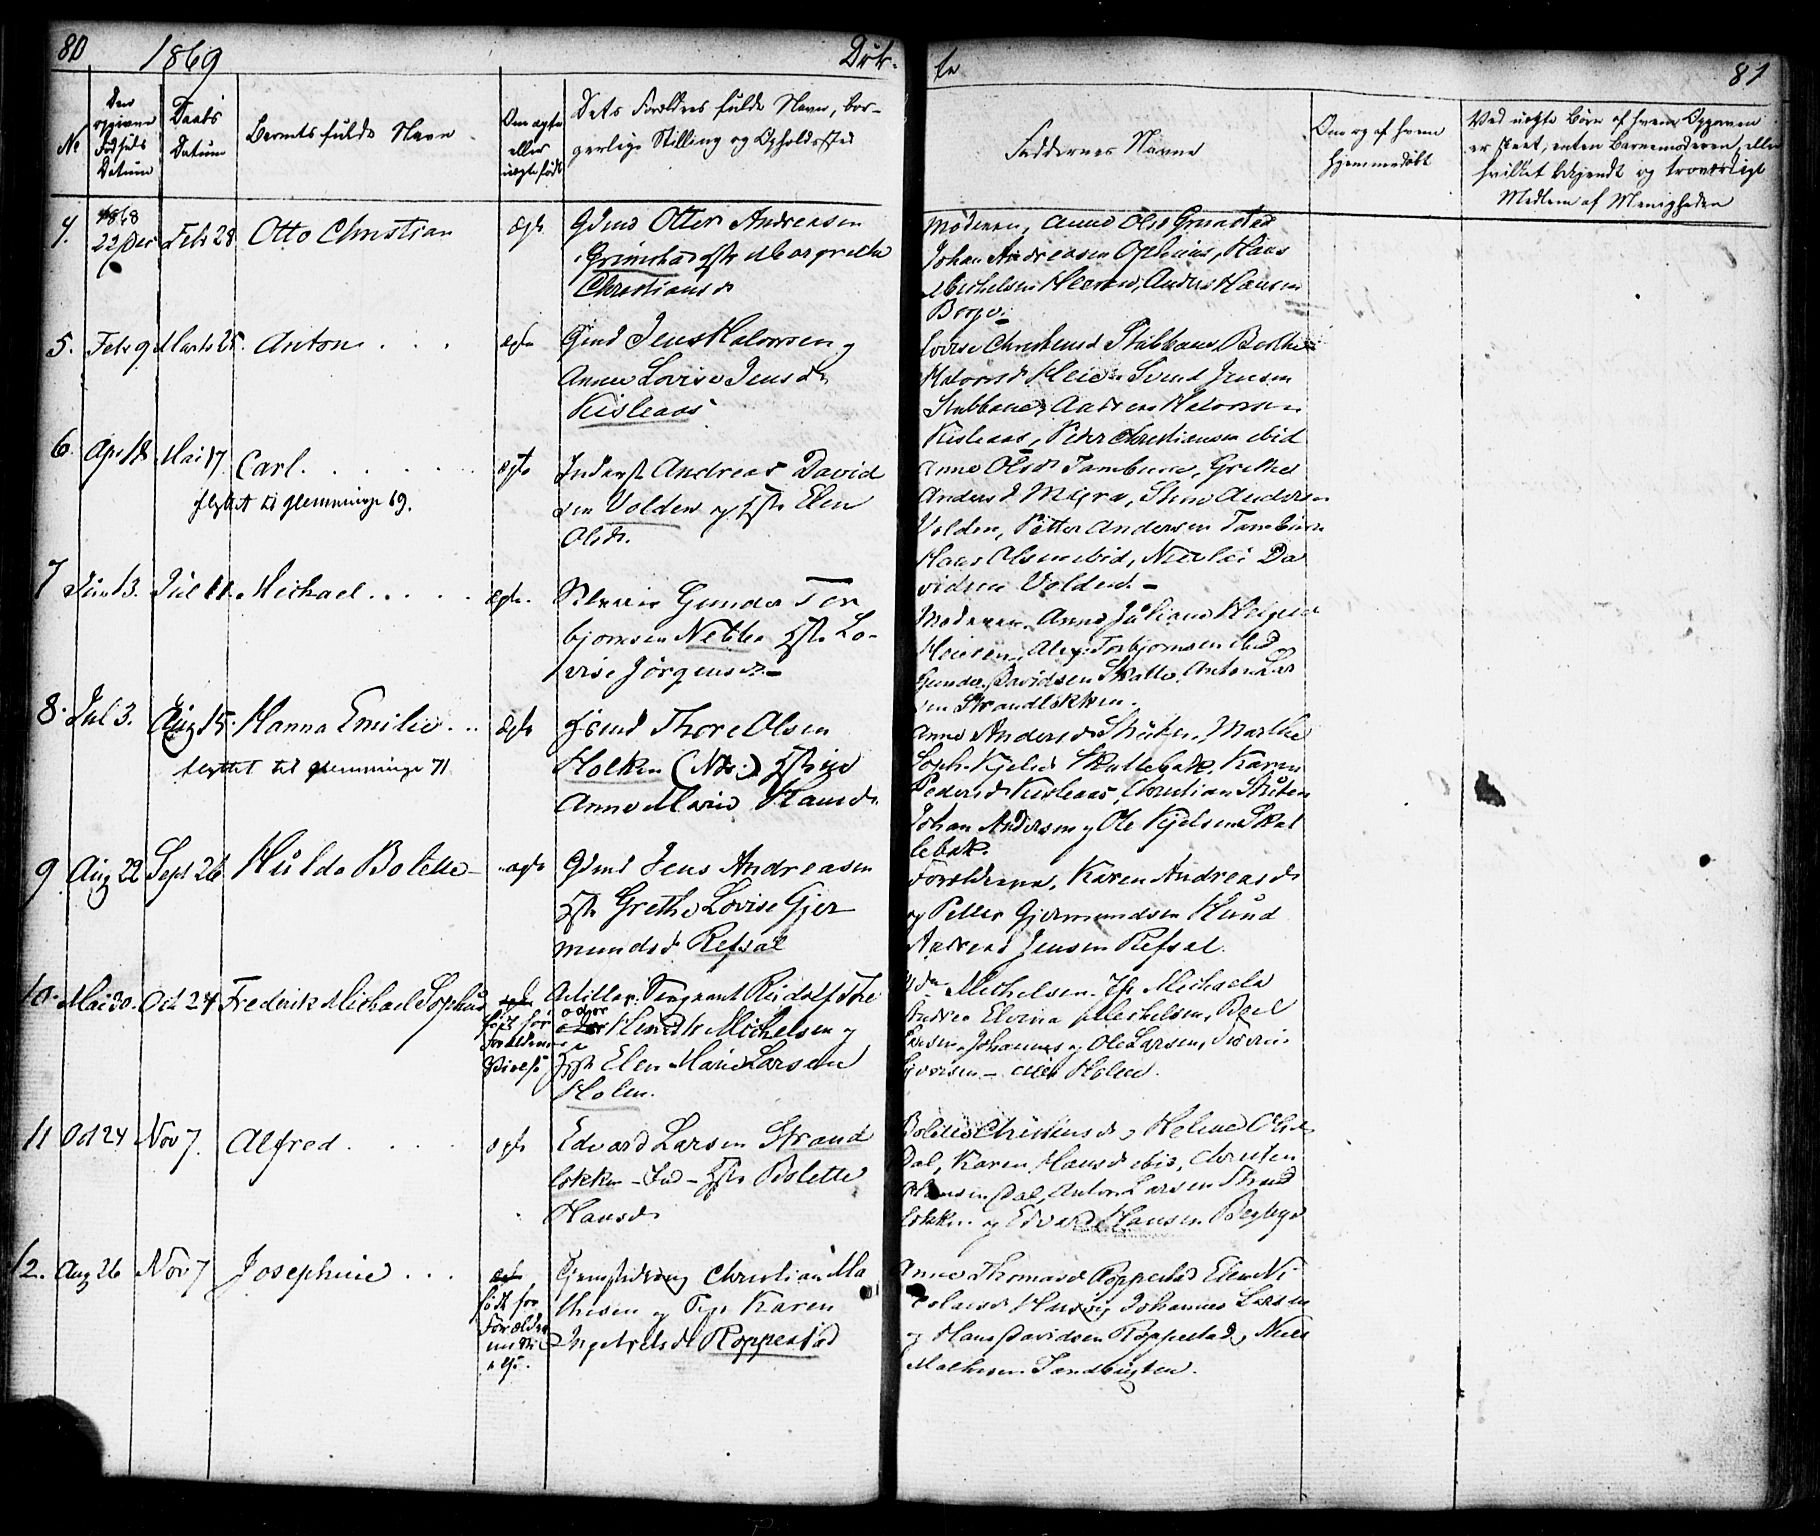 80 1869 Døb-
te 81
No
Den opgivne Fødsels Datum
Daabs Datum
Barnets fulde Navn
Om ægte eller uægte født
Dets Forældres fulde Navn, bor-
gerlige Stilling og Opholdssted
Faddernes Navne
Om og af hvem hjemmedøbt
Ved uægte Børn af hvem Opgaven
er skeet, enten Barnemoderen, eller
hvilket bekjendt og troværdigt
Medlem af Menigheden
4. 1868 22 Dec Febr 28 Otto Christian ægte
Gdmd Otter Andreasen
Grimstad Hstr Margrethe
Christiansd
Moderen, Anne Olsd Grimstad
Johan Andreasen Ophuus, Hans
Michelsen Anders Hansen
Borge.
5. Febr 9 Marts 25. Anton . . . ægte
Gmd Jens Halvorsen og
Anne Lovise Jensdr
Kislaas
Lovise Christensd Stubbane, Berthe
Halvorsd Heie Svend Jensen
Stubbane, Andreas Halvorsen
Kislaas, Peder Christiansen ibid
6. Apr 18 Mai 17 Carl. . . . . . ægte
flyttet til Glemminge 69.
Inderst Andreas David
sen Volden og Hstr Elen
Olsdr.
Anne Olsdr Tambur, Grethe
Andersd Myra, Andersen
Volden, Petter Andersen Tambur
Hans Olsen ibid, Nicolai Da
vidsen Volden. -
7 Juni 3. Jul 11. Michael . . . . ægte.
Gunder Tor
bjørnsen Hstr Lo-
vise Jørgensd. -
Moderen. Anne Juliane
Torbjørnsen
Gunder Davidsen Anton Lar
sen Strandløkken.
8. Jul 3. Aug 15. Hanna Emilie . .. ægte
flyttet til Glemminge 71
Thore Olsen
Holken Hstr
Anne Marie Hansdr
Anne Andersd Marthe
Soph. Kjelsd Skallebak, Karen
Pedersd Kislaas, Christian
Johan Andersen og Ole Kjelsen Skal
lebak.
9 Aug 22 Sept 26 Hulda Bolette - ægte
Gdmd Jens Andreasen
Hstr Grethe Lovise Gjer
mundsd Refsal
Forældrene, Karen Andreasdr
og Petter Gjermundsen Hund
Andreas Jensen Refsal.
10. Mai 30. Oct 24 Frederik Michael Sophus ægte
født før
Forældrenes
Vielse
Militær Sergeant Rudolf
Henrik Michelsen og
Hstr Elen Marie Larsen
Holen.
Michelsen. Jfr Michaela
Andrea Elvina Michelsen,
Johannes og Ole Larsen,
Holen.
11 Oct 24 Nov 7. Alfred . . . . ægte
Edvard Larsen Strand
løkken - Ind - Hstr Bolette
Hansdr
Helene Olsd
Dal, Karen Hansd ibid, Christen
Hansen Dal, Anton Larsen Strand
løkken og Edvard Hansen Begbye
12. Aug 26 Nov 7 Josephine . . . ægte
født før
Forældre
nes Vi
else.
Christian Ma
thisen og Karen
Ingebretsdr Roppestad
Anne Thomasd Roppestad Elen Ni
colaisd Johannes Larsen
og Hans Davidsen Roppestad, Niels
Mathisen Sandbugten.